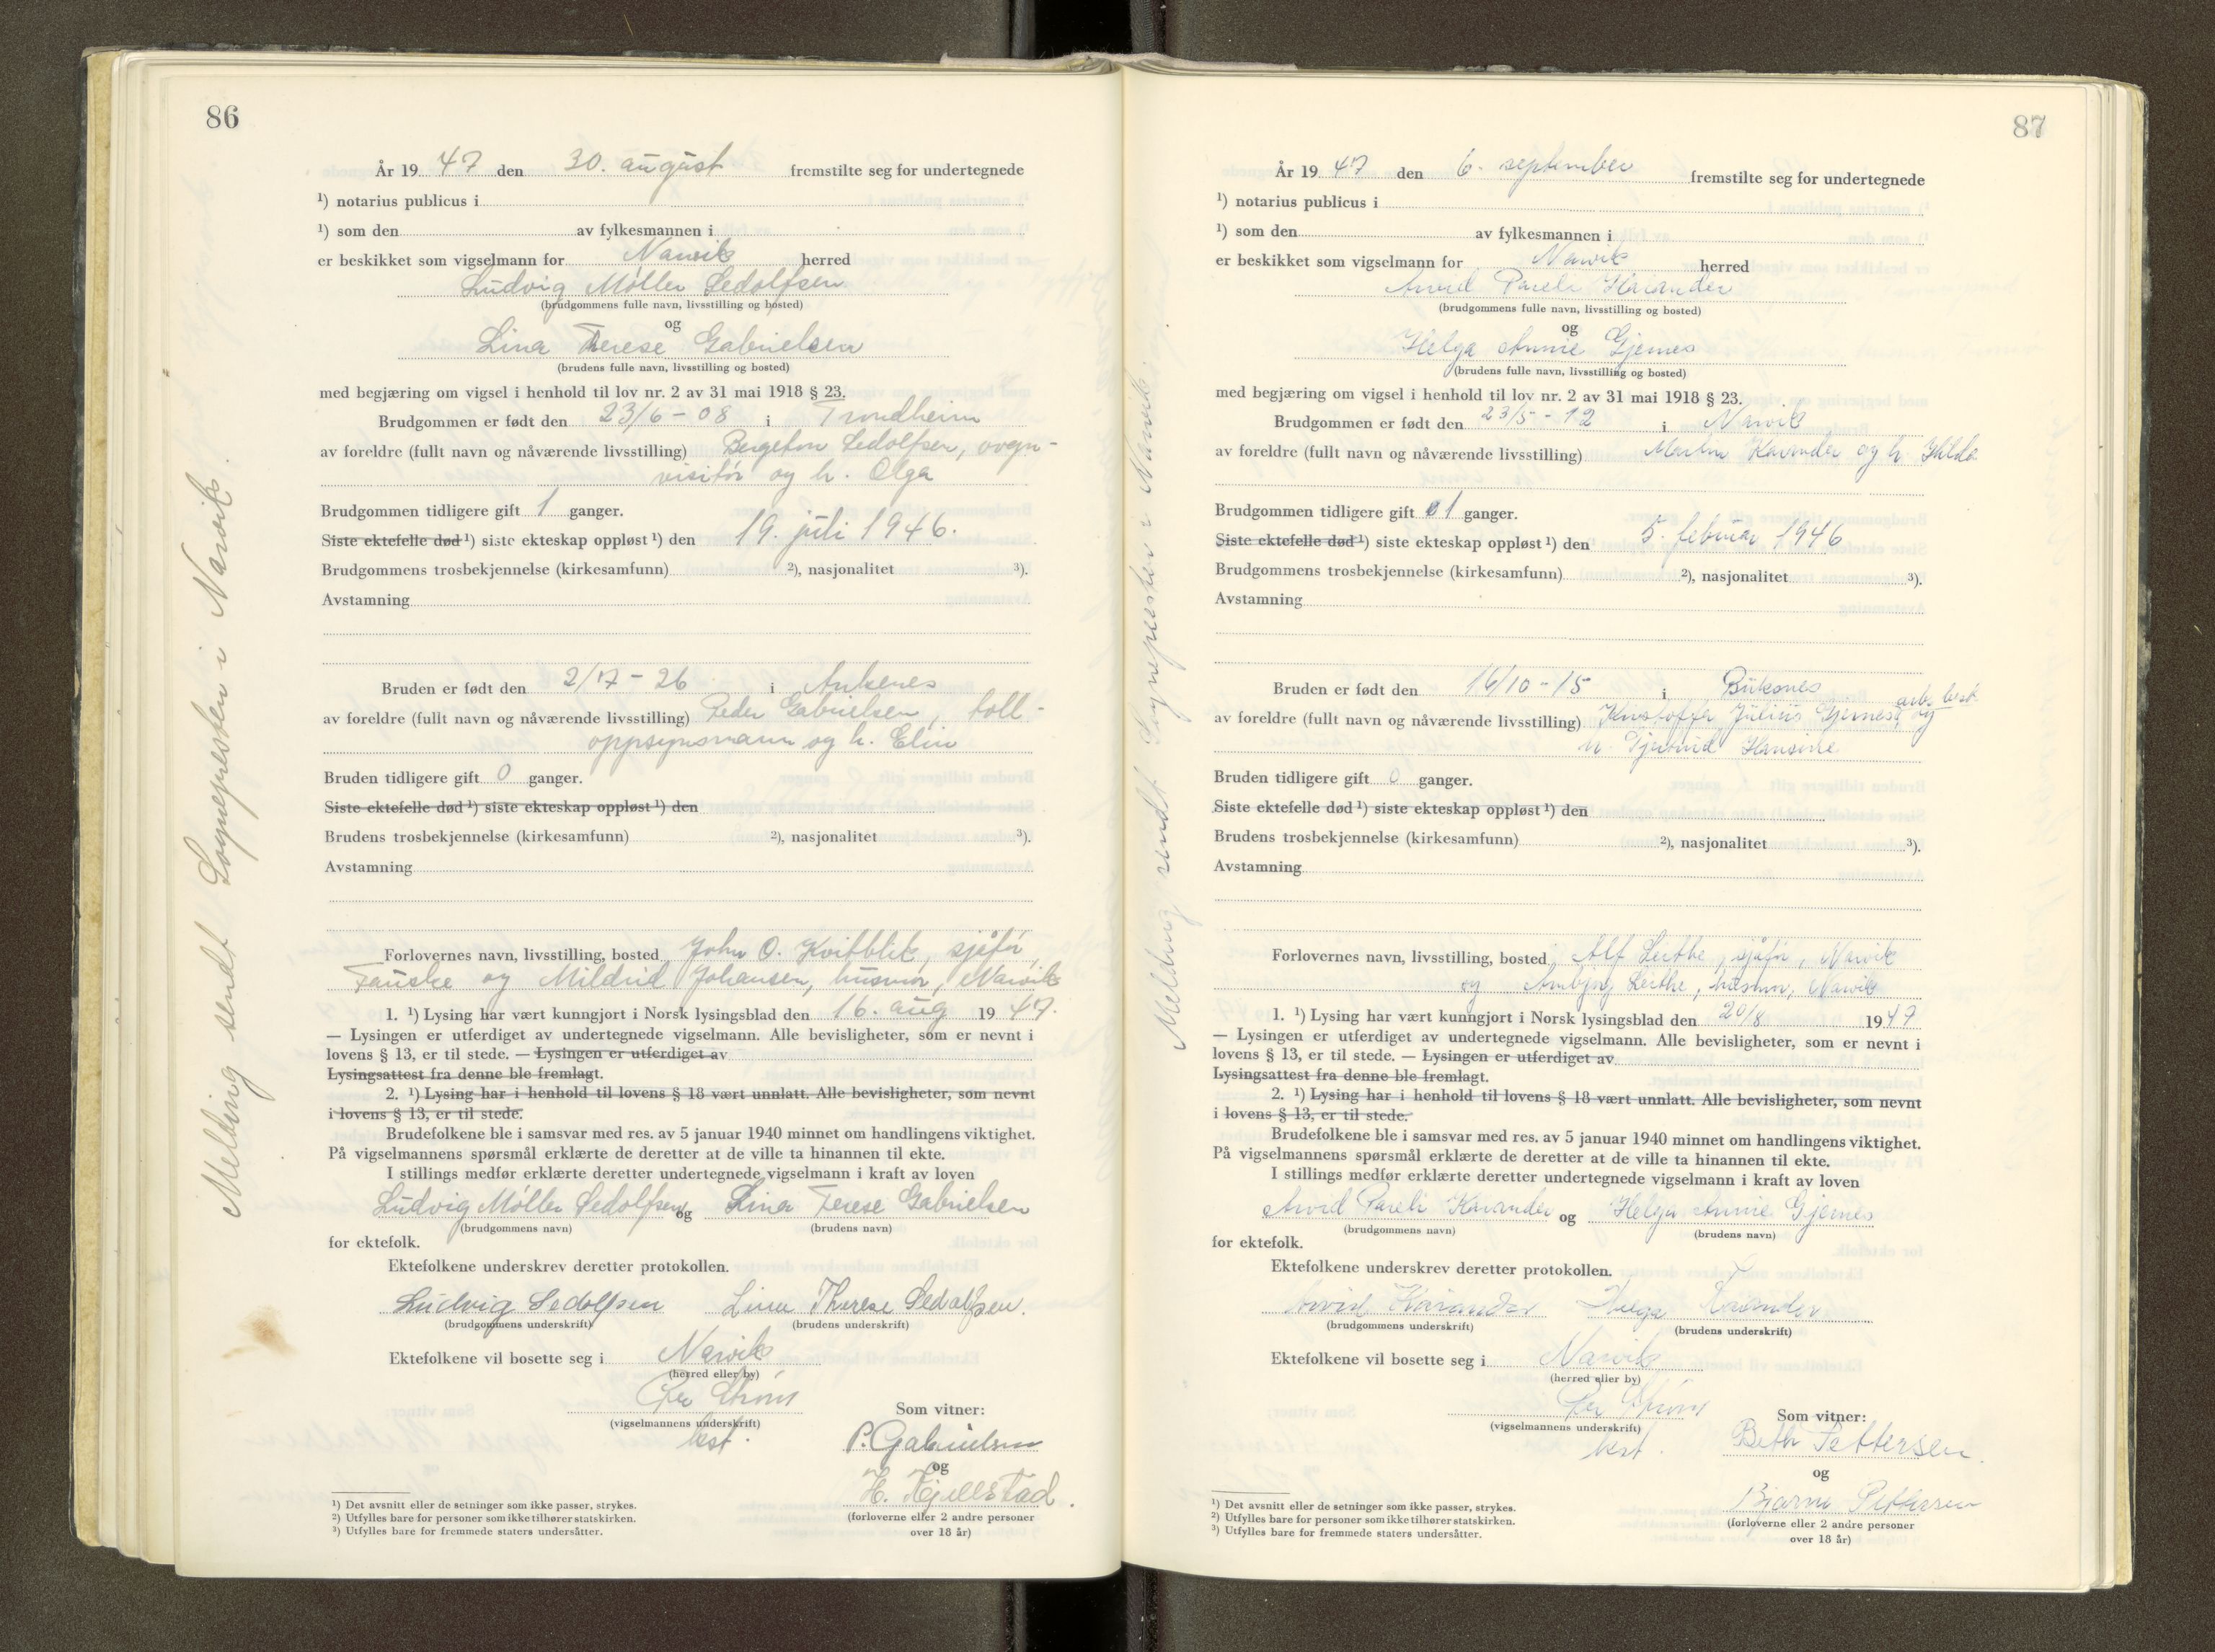 86
År 19 47 den 30. august fremstilte seg for undertegnede
¹) notarius publicus i
¹) som den av fylkesmannen i
er beskikket som vigselmann for Narvik herred
Ludvig Møller Sedolfsen
(brudgommens fulle navn, livsstilling og bosted)
og
Lina Terese Gabrielsen
(brudens fulle navn, livsstilling og bosted)
med begjæring om vigsel i henhold til lov nr. 2 av 31 mai 1918 § 23.
Brudgommen er født den 23/6 - 08 i Trondheim
av foreldre (fullt navn og nåværende livsstilling) Sedolfsen, vogn-
visitør og h. Olga
Brudgommen tidligere gift 1 ganger.
Siste ektefelle død ¹) siste ekteskap oppløst ¹) den 19. juli 1946.
Brudgommens trosbekjennelse (kirkesamfunn) ²), nasjonalitet ³).
Avstamning
Bruden er født den 2/7 - 26 i Ankenes
av foreldre (fullt navn og nåværende livsstilling) Peder Gabrielsen, toll-
oppsynsmann og h. Elin
Bruden tidligere gift 0 ganger.
Siste ektefelle død ¹) siste ekteskap oppløst ¹) den
Brudens trosbekjennelse (kirkesamfunn) ²), nasjonalitet ³).
Avstamning
Forlovernes navn, livsstilling, bosted John O. Kvitblik, sjåfør,
Fauske og Mildrid Johansen, husmor, Narvik
1. ¹) Lysing har vært kunngjort i Norsk lysingsblad den 16. aug 19 47.
— Lysingen er utferdiget av undertegnede vigselmann. Alle bevisligheter, som er nevnt i
lovens § 13, er til stede. — Lysingen er utferdiget av
Lysingsattest fra denne ble fremlagt.
2. ¹) Lysing har i henhold til lovens § 18 vært unnlatt. Alle bevisligheter, som nevnt
i lovens § 13, er til stede.
Brudefolkene ble i samsvar med res. av 5 januar 1940 minnet om handlingens viktighet.
På vigselmannens spørsmål erklærte de deretter at de ville ta hinannen til ekte.
I stillings medfør erklærte deretter undertegnede vigselmann i kraft av loven
Ludvig Møller Sedolfsen og Lina Terese Gabrielsen
(brudgommens navn) (brudens navn)
for ektefolk.
Ektefolkene underskrev deretter protokollen.
Ludvig Sedolfsen Lina Therese Sedolfsen.
(brudgommens underskrift) (brudens underskrift)
Ektefolkene vil bosette seg i Narvik
(herred eller by)
Per Strøm
(vigselmannens underskrift)
best.
Som vitner:
P. Gabrielsen
og
H. Kjellstad.
(forloverne eller 2 andre personer
over 18 år)
¹) Det avsnitt eller de setninger som ikke passer, strykes.
²) Utfylles bare for personer som ikke tilhører statskirken.
³) Utfylles bare for fremmede staters undersåtter.
Melding sendt Sognepresten i Narvik.
87
År 19 47 den 6. september fremstilte seg for undertegnede
¹) notarius publicus i
¹) som den av fylkesmannen i
er beskikket som vigselmann for Narvik herred
Arvid Pareli Kavander
(brudgommens fulle navn, livsstilling og bosted)
og
Helga Annie Gjernes
(brudens fulle navn, livsstilling og bosted)
med begjæring om vigsel i henhold til lov nr. 2 av 31 mai 1918 § 23.
Brudgommen er født den 23/5 - 12 i Narvik
av foreldre (fullt navn og nåværende livsstilling) Martin Kavander og h. Hilda
Brudgommen tidligere gift 1 ganger.
Siste ektefelle død ¹) siste ekteskap oppløst ¹) den 5. februar 1946
Brudgommens trosbekjennelse (kirkesamfunn) ²), nasjonalitet ³).
Avstamning
Bruden er født den 16/10 - 15 i Buksnes
av foreldre (fullt navn og nåværende livsstilling) Kristoffer Julius Gjernes, arb. best. og
h. Hansine
Bruden tidligere gift 0 ganger.
Siste ektefelle død ¹) siste ekteskap oppløst ¹) den
Brudens trosbekjennelse (kirkesamfunn) ²), nasjonalitet ³).
Avstamning
Forlovernes navn, livsstilling, bosted Alf Leithe, sjåfør, Narvik
og Leithe, husmor, Narvik
1. ¹) Lysing har vært kunngjort i Norsk lysingsblad den 20/8 19 47
— Lysingen er utferdiget av undertegnede vigselmann. Alle bevisligheter, som er nevnt i
lovens § 13, er til stede. — Lysingen er utferdiget av
Lysingsattest fra denne ble fremlagt.
2. ¹) Lysing har i henhold til lovens § 18 vært unnlatt. Alle bevisligheter, som nevnt
i lovens § 13, er til stede.
Brudefolkene ble i samsvar med res. av 5 januar 1940 minnet om handlingens viktighet.
På vigselmannens spørsmål erklærte de deretter at de ville ta hinannen til ekte.
I stillings medfør erklærte deretter undertegnede vigselmann i kraft av loven
Arvid Pareli Kavander og Helga Annie Gjernes
(brudgommens navn) (brudens navn)
for ektefolk.
Ektefolkene underskrev deretter protokollen.
Arvid Kavander Helga Kavander
(brudgommens underskrift) (brudens underskrift)
Ektefolkene vil bosette seg i Narvik
(herred eller by)
Per Strøm
(vigselmannens underskrift)
best.
Som vitner:
Beth Pettersen.
og
Bjarne Pettersen
(forloverne eller 2 andre personer
over 18 år)
¹) Det avsnitt eller de setninger som ikke passer, strykes.
²) Utfylles bare for personer som ikke tilhører statskirken.
³) Utfylles bare for fremmede staters undersåtter.
Melding sendt Sognepresten i Narvik.